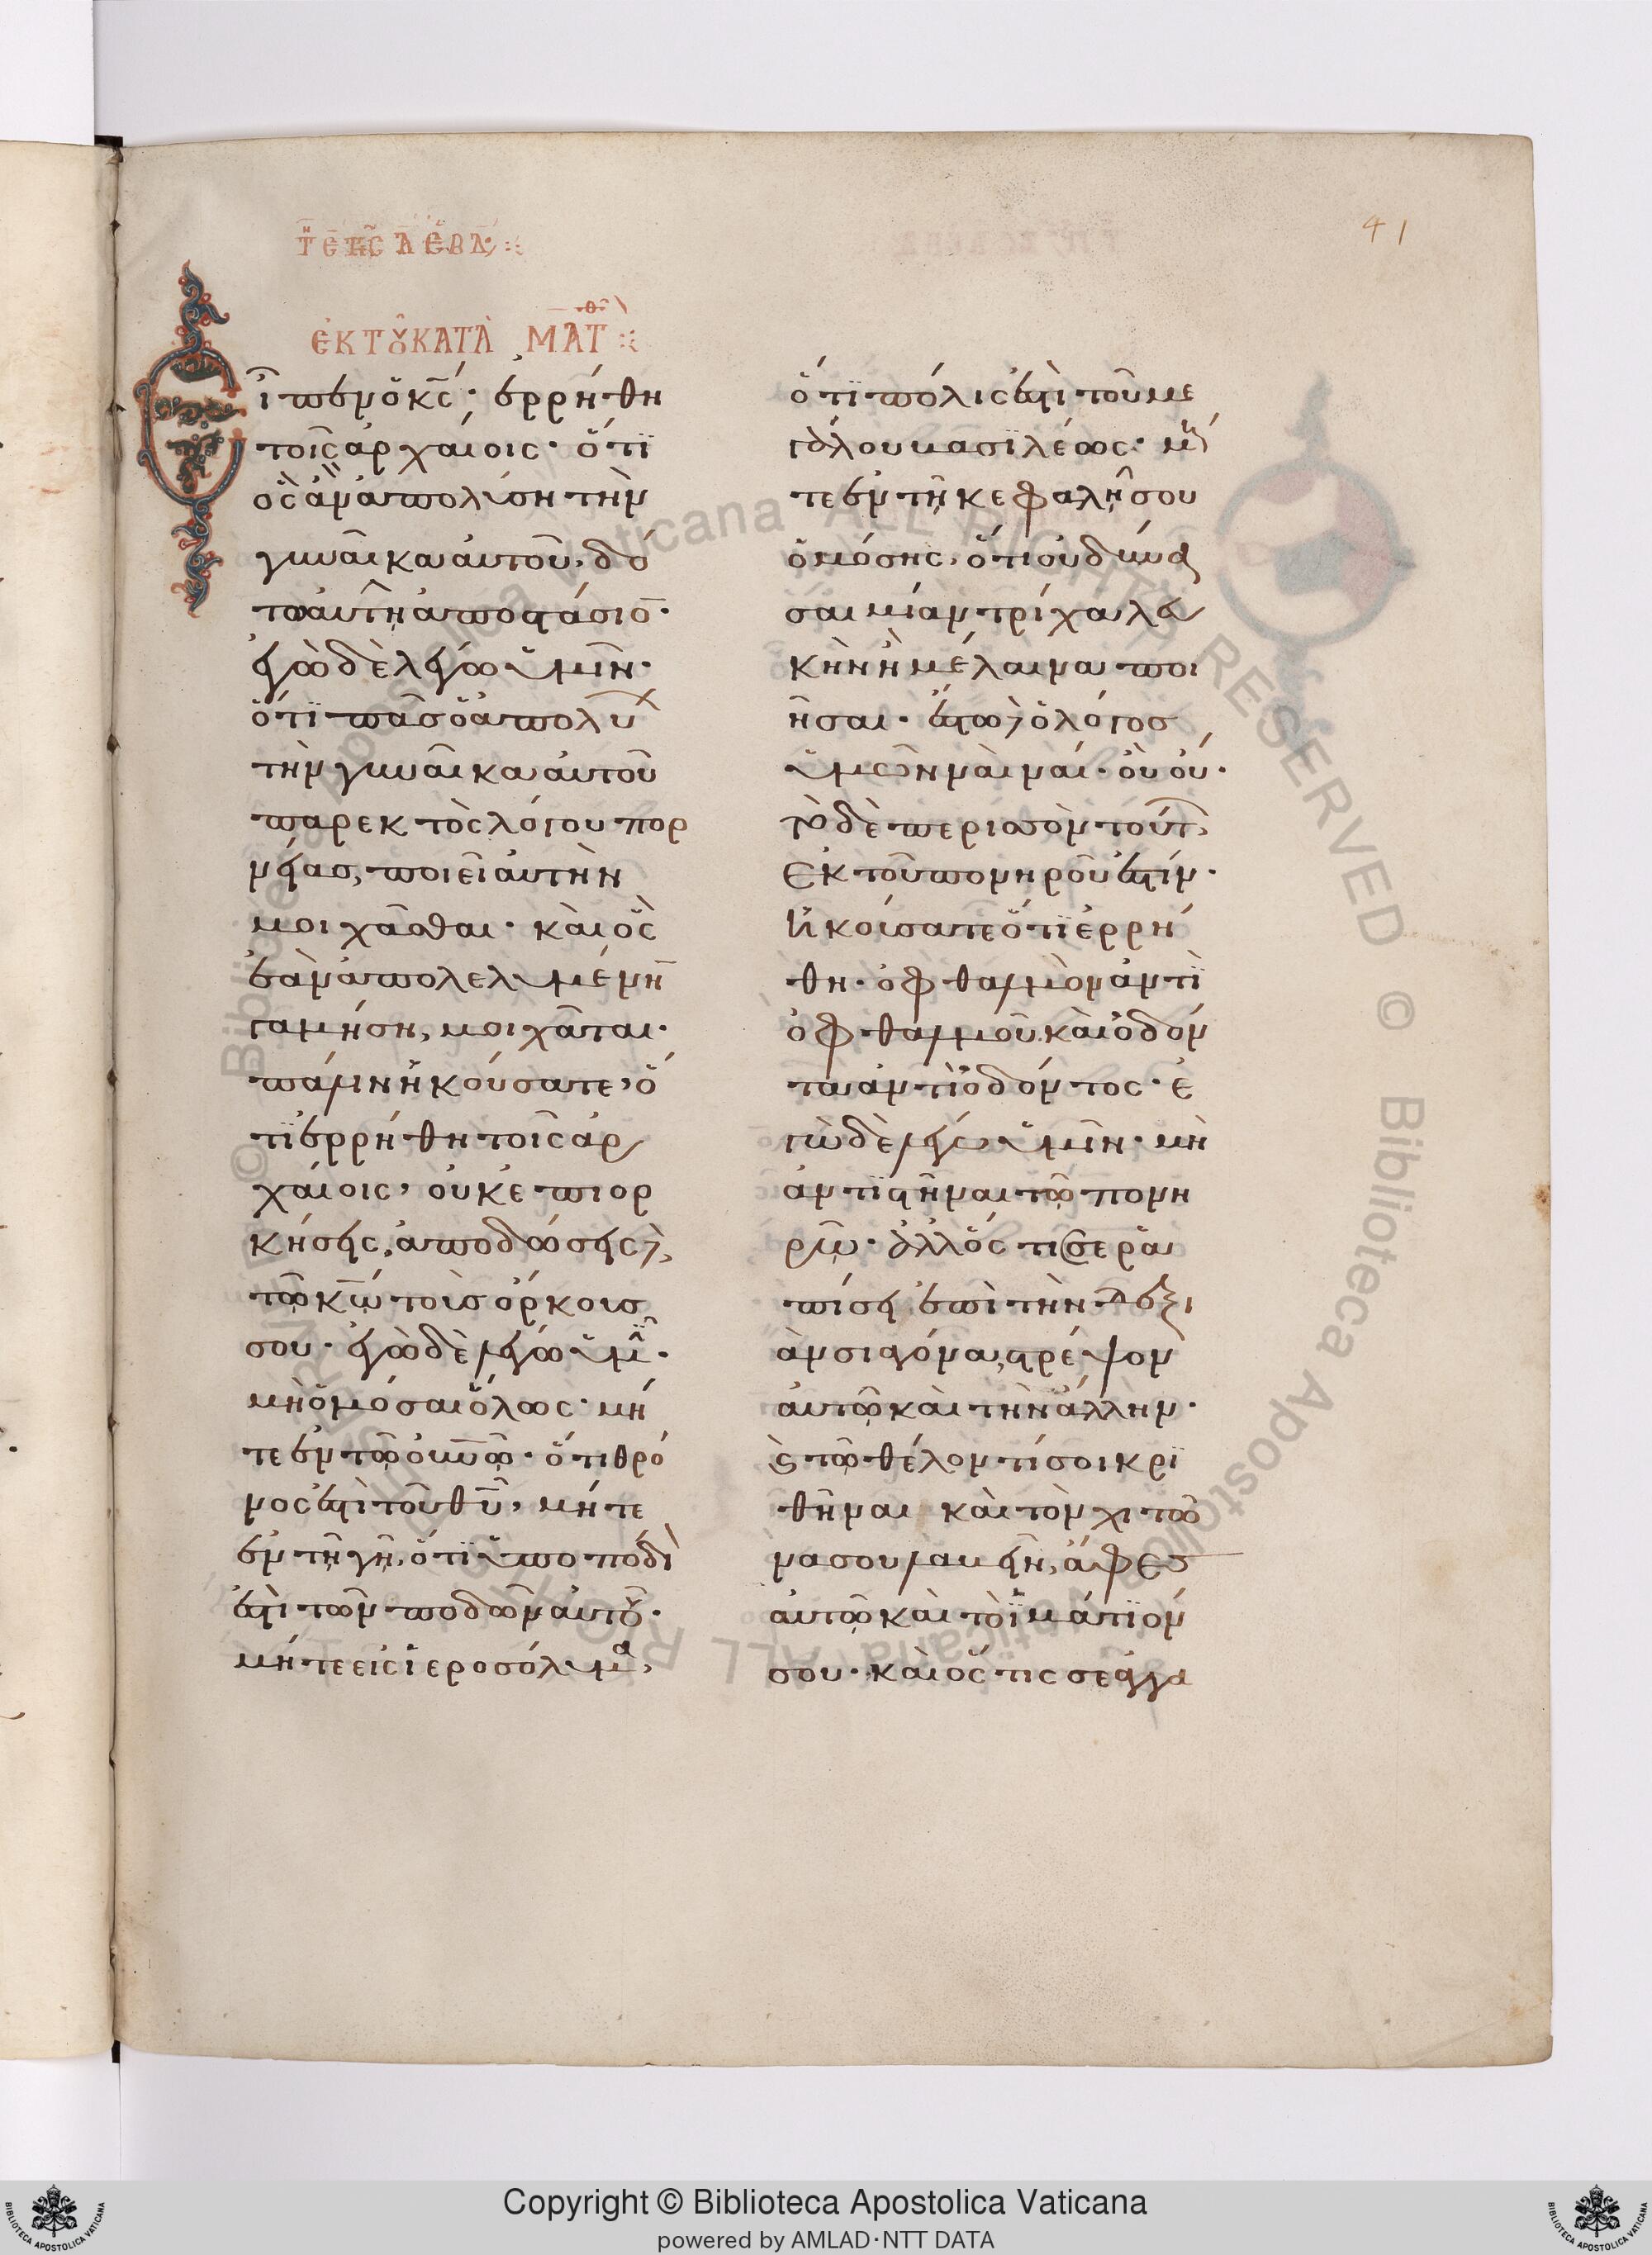 41
ΕΚ ΤΟΥ ΚΑΤΑ ΜΑΤΘ
Εἶπεν ὁ κς· ἐρρήθη
τοῖς ἀρχαίοις· ὅτι
ὃς ἂν ἀπολύση τὴν
γυναῖκα αὐτοῦ, δό
τω αὐτῆ ἀποστάσιο̅·
ἐγὼ δὲ λέγω ὑμῖν·
ὅτι πᾶς ὁ ἀπολύ
τὴν γυναῖκα αὐτοῦ
παρεκτὸς λόγου πορ
νείας, ποιεῖ αὐτὴν
μοιχᾶσθαι· καὶ ὃς
ἐὰν ἀπολελυμένη̅
γαμήση, μοιχᾶται·
πάλιν ἠκούσατε, ὅ
τι ἐρρήθη τοῖς ἀρ
χαίοις, οὐκ ἐπιορ
κήσεις, ἀποδώσεις δὲ
τῶ κω τοὺς ὅρκους
σου· ἐγὼ δὲ λέγω ὑμῖ·
μὴ ὀμόσαι ὅλως· μή
τε ἐν τῶ ουνω· ὅτι θρό
νος ἐστὶ τοῦ θυ, μήτε
ἐν τῆ γῆ, ὅτι ὑποπόδι
ἐστὶ τῶν ποδῶν αὐτοῦ·
μήτε εἰς ἱεροσόλυμα,
ὅτι πόλις ἐστὶ τοῦ με
γάλου βασιλέως· μή
τε ἐν τῆ κεφαλῆ σου
ὀμόσης, ὅτι οὐ δύνα
σαι μίαν τρίχα λευ
κὴν ἢ μέλαιναν ποι
ῆσαι· ἔστω δὲ ὁ λόγος
ὑμῶν ναὶ ναί· οὐ οὔ·
τὸ δὲ περισσὸν τούτ
ἐκ τοῦ πονηροῦ ἐστίν·
Ἠκούσατε ὅτι ἐρρή
θη· ὀφθαλμὸν ἀντὶ
ὀφθαλμοῦ· καὶ ὀδόν
τα ἀντὶ ὀδόντος· ἐ
γὼ δὲ λέγω ὑμῖν· μὴ
ἀντιστῆναι τῶ πονη
ρῶ· ἀλλ' ὅστις σε ῥα
πίσει ἐπὶ τὴν δεξι
ὰν σιαγόνα, στρέψον
αὐτῶ καὶ τὴν ἄλλην·
ϗ τῶ θέλοντί σοι κρι
θῆναι καὶ τὸν χιτῶ
νά σου λαβεῖν, ἄφες
αὐτῶ καὶ τὸ ἱμάτιόν
σου· καὶ ὅστις σε ἀγγα
Copyright © Biblioteca Apostolica Vaticana
powered by AMLAD·NTT DATA